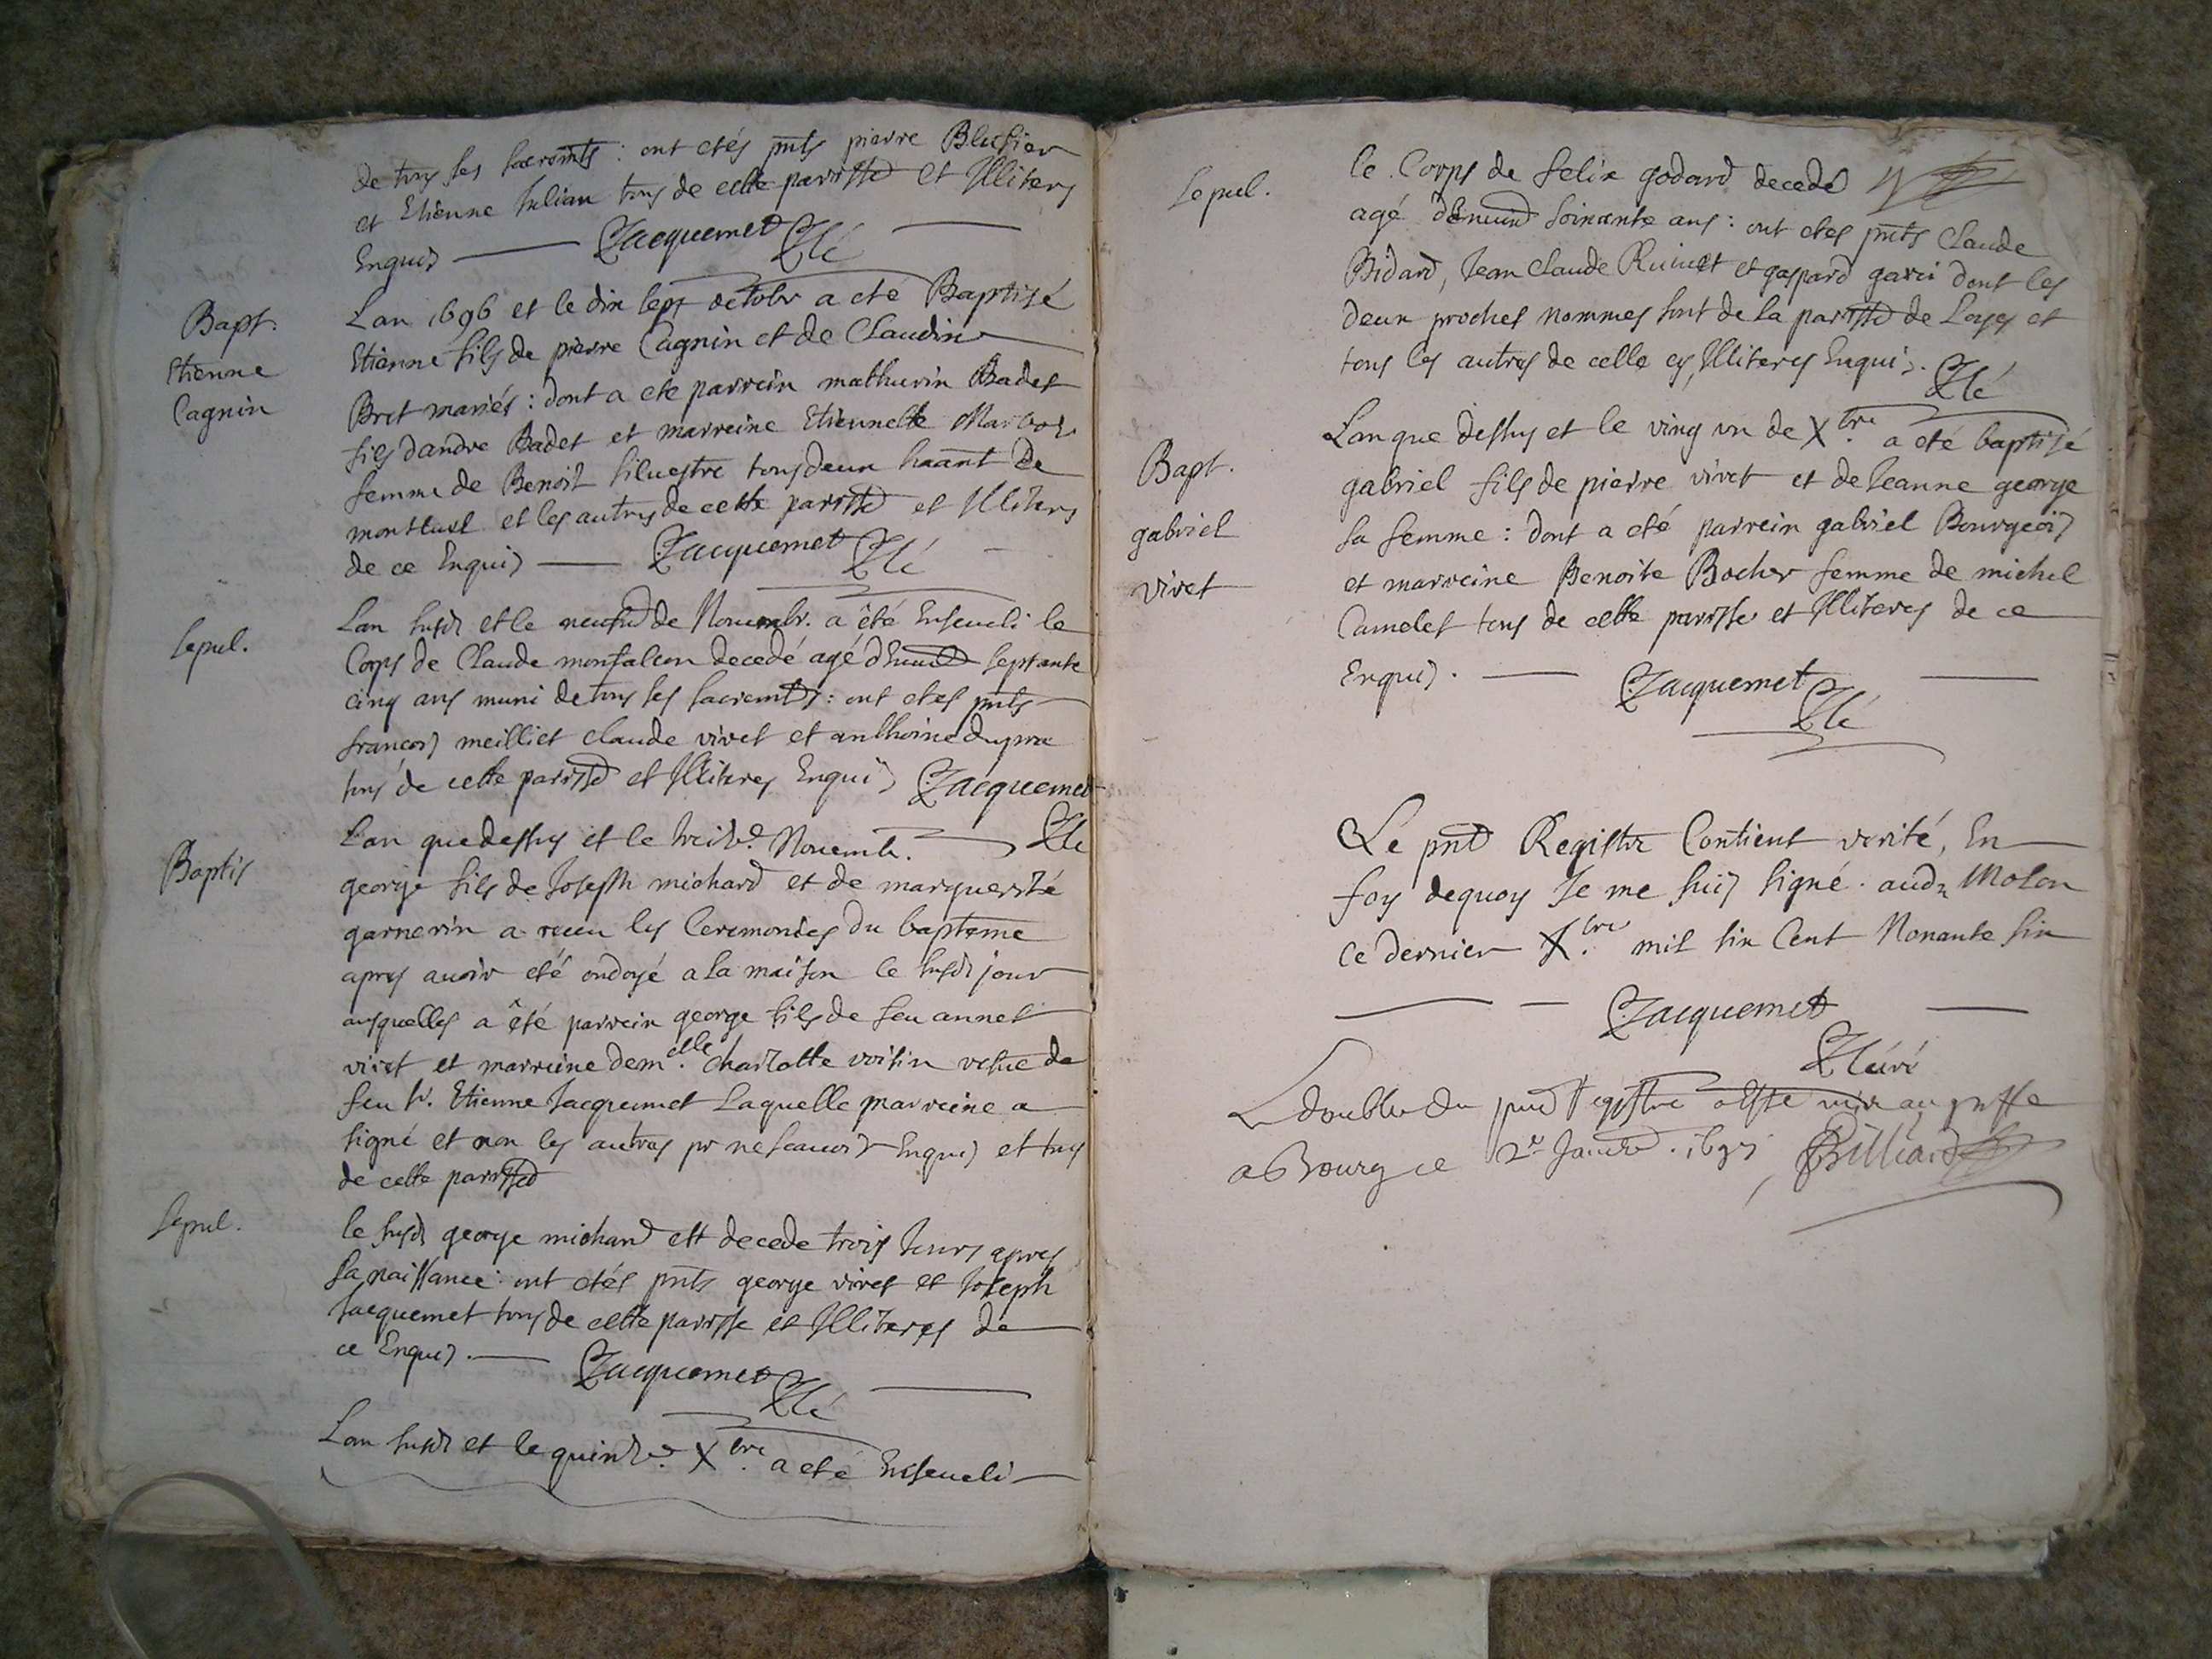 de tous ses sacremts : ont etés pnts pierre Blusier
et Etienne Julian tous de cette parisse et Illiteres
Enquis Jacquemet Clé
Bapt.
Etienne
Cagnin
Lan 1696 et le dix sept octobr a eté Baptisé
Etienne fils de pierre Cagnin et de Claudine
Bret mariés : dont a ete parrein mathurin Badet
fils dandre Badet et marreine Etiennette
femme de Benoit siluestre tous deux haant de
montluel et les autres de cette parisse et Illiteres
de ce Enquis Jacquemet Clé
Sepul.
Lan susd et le neufu de Nouembr. a été Enseueli le
Corps de Claude monfalcon decedé agé dEnuird septante
cinq ans muni de tous ses sacremts : ont etes pnts
francois meilliet claude vivet et anthoine dupra
tous de cette parisse et Illiteres Enquis Jacquemet
Clé
Baptis
Lan que dessus et le treize Nouemb.
george fils de Joseph michard et de marguerite
garnerin a receu les Ceremonies du bapteme
apres auoir eté ondoyé a la maison le susd jour
ausquelles a été parrein george fils de feu annet
vivet et marreine demlle. charlotte voisin vefue de
feu sr. Etienne Jacquemet Laquelle marreine a
signé et non les autres pr ne scauoir Enquis et tous
de cette parisse
Sepul.
le susd george michard est decede trois Jours apres
sa naissance : ont etés pnts george vivet et Joseph
Jacquemet tous de cette parisse et Illiteres de
ce Enquis. Jacquemet Clé
Lan susd et le quinze. Xbre. a eté Enseueli
Sepul.
le Corps de felix godard decedé
agé dEnuird soixante ans : ont etes pnts claude
Bidard, Jean claude et gaspard garci dont les
deux proches nommes sont de la parisse de Loyes et
tous les autres de celle cy Illiteres Enquis. Clé
Bapt.
gabriel
vivet
Lan que dessus et le ving un de Xbre. a eté baptisé
gabriel fils de pierre vivet et de Jeanne george
sa femme : dont a eté parrein gabriel Bourgeois
et marreine Benoite Bocher femme de michel
Camelet tous de cette parisse et Illiteres de ce
Enquis. Jacquemet
Clé
Le pnt Registre Contient verité, En
foy dequoy Je me suis signé. aud Molon
ce dernier Xbre. mil six Cent Nonante six
Jacquemet
Curé
Le double du pnt Registre a Este mis au greffe
a Bourg ce 2e Janvr. 1697 Billiard